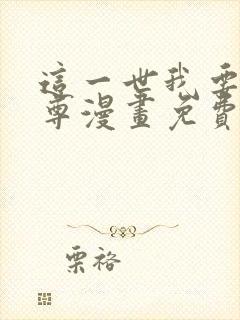 這一世我要
尊漫畫免費
栗裕